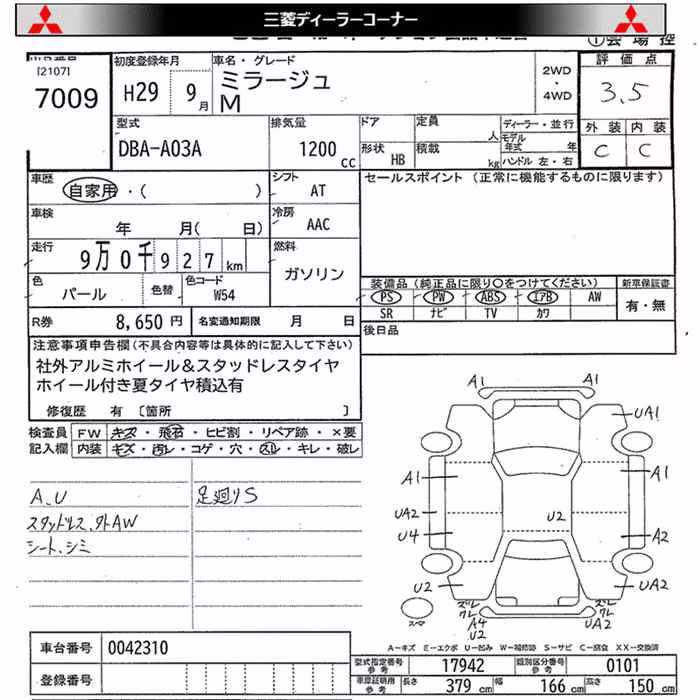 三菱ディーラーコーナー
①会場控
[2107]
7009
初度登録年月
H29 9月
車名・グレード
ミラージュ
M
2WD
・
4WD
評価点
3.5
外装 内装
C C
型式
DBA-A03A
排気量
1200 cc
ドア
形状 HB
定員 人
積載 kg
ディーラー・並行
モデル年式 年
ハンドル 左・右
車歴
自家用・( )
シフト
AT
セールスポイント (正常に機能するものに限ります)
車検
年 月( 日)
冷房
AAC
走行
9万0千927km
燃料
ガソリン
色
パール
色替
色コード
W54
装備品 (純正品に限り○をつけてください)
PS PW ABS エアB AW
SR ナビ TV カワ
新車保証書
有・無
R券 8,650 円
名変通知期限 月 日
後日品
注意事項申告欄 (不具合内容等は具体的に記入して下さい)
社外アルミホイール&スタッドレスタイヤ
ホイール付き夏タイヤ積込有
修復歴 有 [箇所 ]
検査員
記入欄
FW キズ・飛石・ヒビ割・リペア跡・×要
内装 キズ・汚レ・コゲ・穴・スレ・キレ・破レ
A、U
スタッドレス、外AW
シート、シミ
足廻りS
A1 A1
UA1
A1 A1
UA2 U2
U4 A2
U2 UA2
ズレ ズレ
クレ クレ
A4 UA2
U2
スペア
A-キズ E-エクボ U-凹み W-補修跡 S-サビ C-腐食 XX-交換済
車台番号 0042310
登録番号
型式指定番号 参考 17942
類別区分番号 参考 0101
車庫証明用 参考 長さ 379 cm 幅 166 cm 高さ 150 cm